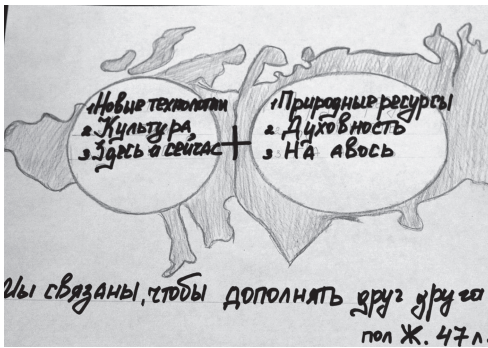 1 Новые технологии
2. Культура
3. Здесь и сейчас
+
1 Природные ресурсы
2 Духовность
3 На авось
Мы связаны, чтобы дополнять друг друга
пол Ж. 47 л.